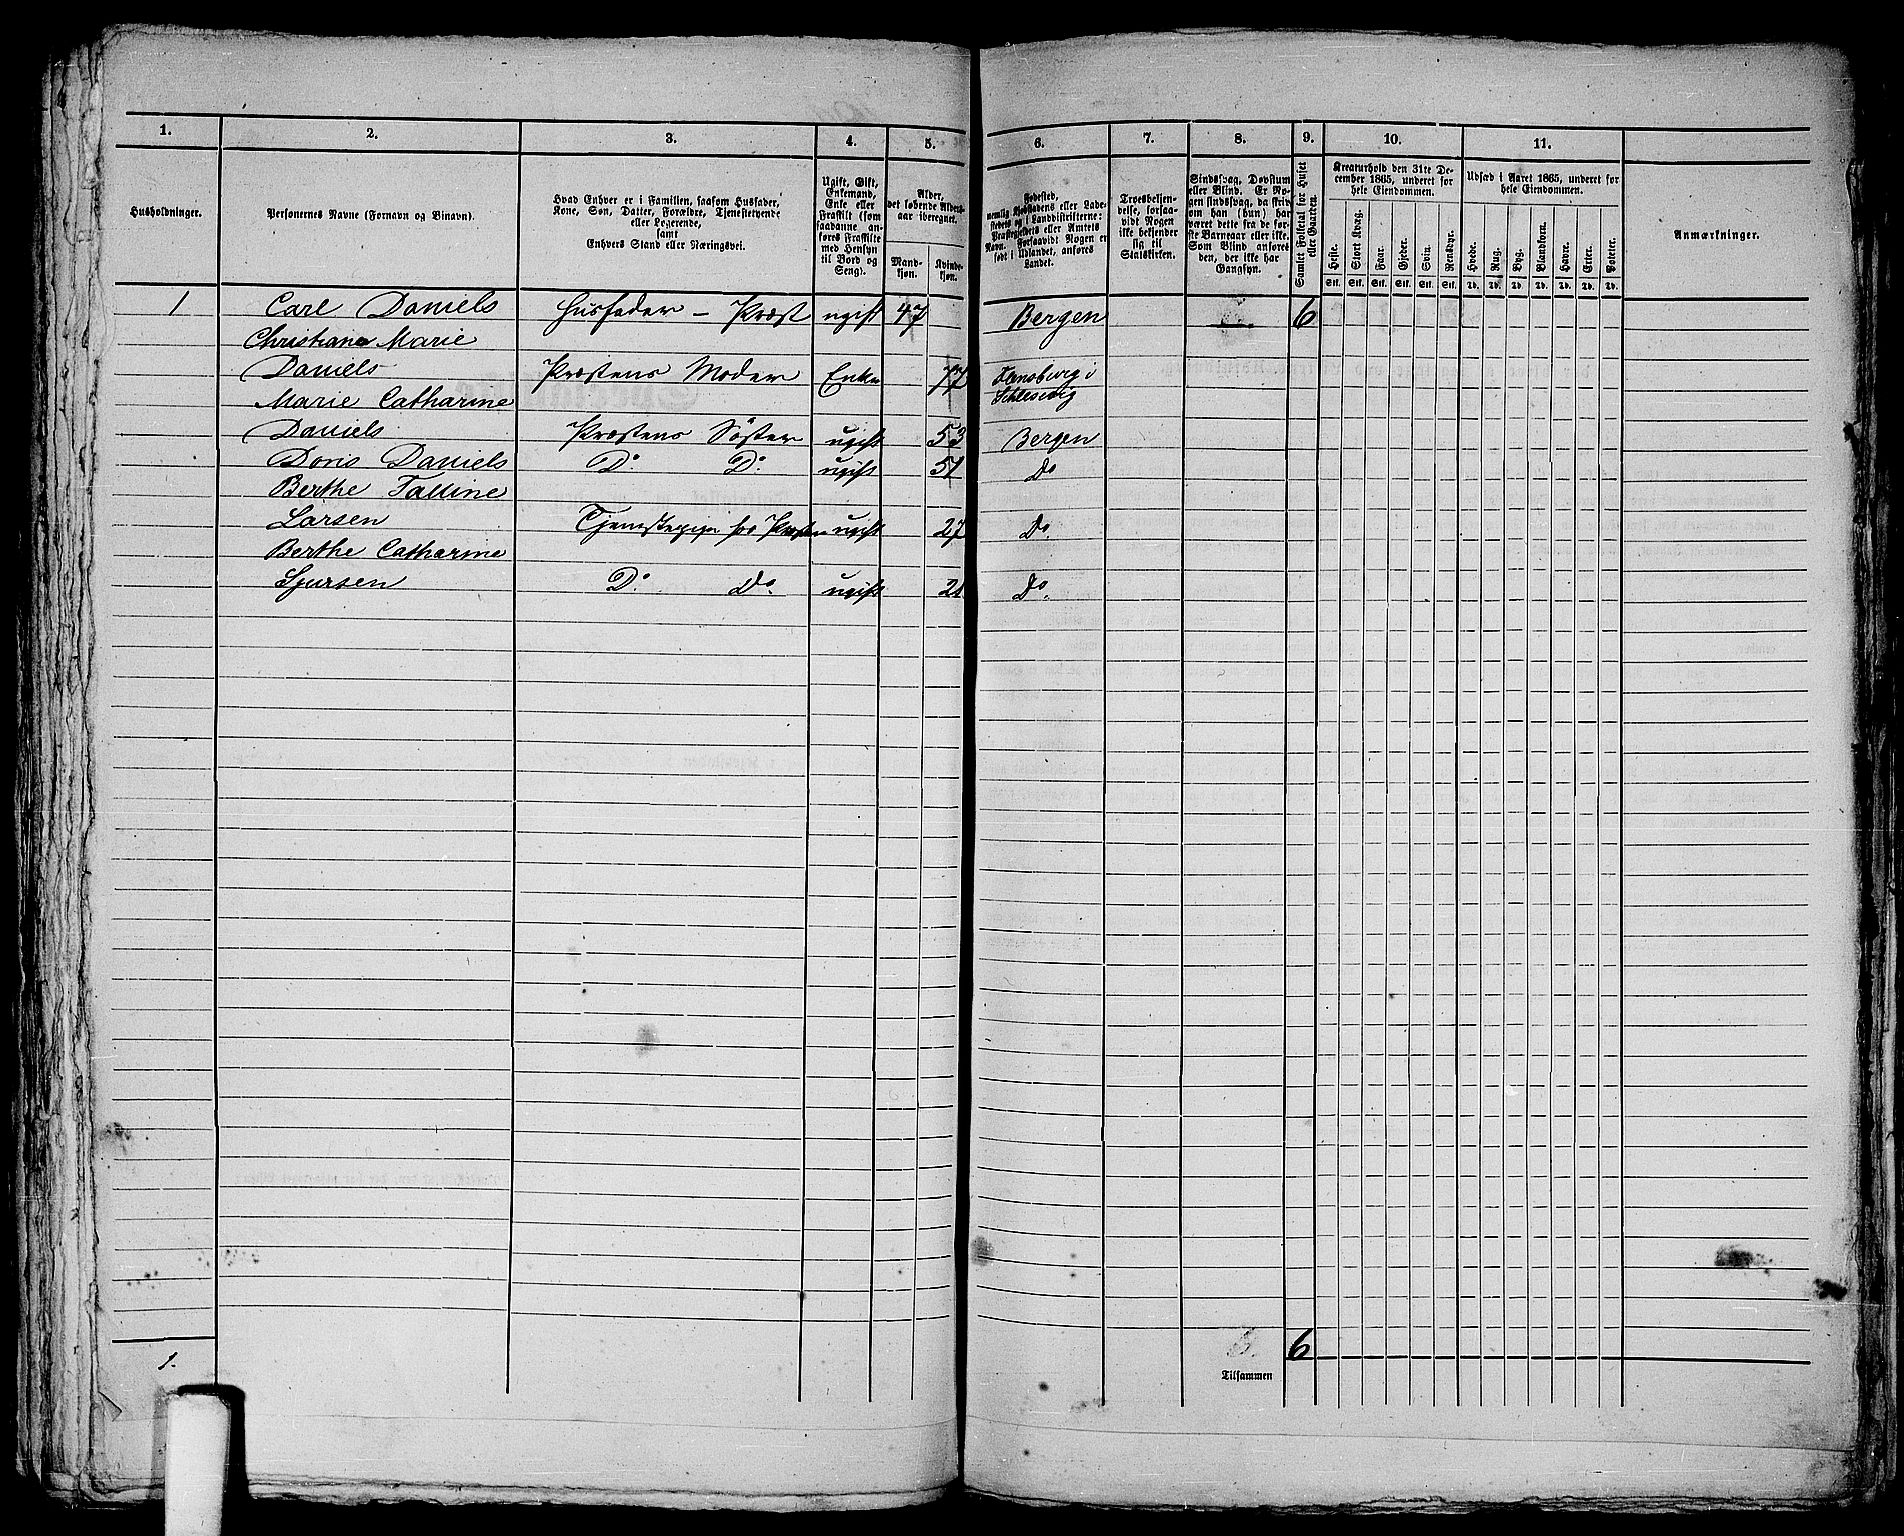 1. 2. 3. 4. 5. 6. 7. 8. 9. 10. 11.
Husholdninger.
Personernes Navne (Fornavn og Binavn).
Hvad Enhver er i Familien, saasom Husfader,
Kone, Søn, Datter, Forældre, Tjenestetyende
eller Logerende,
samt
Enhvers Stand eller Næringsvei.
Ugift, Gift,
Enkemand,
Enke eller
Fraskilt (som
saadanne an-
føres Fraskilte
med Hensyn
til Bord og
Seng).
Alder,
det løbende Alders-
aar iberegnet.
Mand-
kjøn.
Kvinde-
kjøn.
Fødested,
nemlig Kjøbstadens eller Lade-
stedets og i Landdistrikterne:
Præstegjeldets eller Amtets
Navn. Forsaavidt Nogen er
født i Udlandet, anføres
Landet.
Troesbekjen-
delse, forsaa-
vidt Nogen
ikke bekjender
sig til
Statskirken.
Sindssvag, Døvstum
eller Blind. Er No-
gen sindssvag, da skriv
om han (hun) har
været dette fra de før-
ste Barneaar eller ikke.
Som Blind anføres
den, der ikke har
Gangsyn.
Samlet Folketal for Huset
eller Gaarden.
Kreaturhold den 31te De-
cember 1865, underet for
hele Eiendommen.
Heste. Stort Kvæg. Faar. Gjeder. Svin. Rensdyr.
Stk. Stk. Stk. Stk. Stk. Stk.
Udsæd i Aaret 1865, underet for
hele Eiendommen.
Hvede. Rug. Byg. Blandkorn. Havre. Erter. Poteter.
Td. Td. Td. Td. Td. Td. Td.
Anmærkninger.
1 Carl Daniels Husfader – Præst ugift 47 Bergen 6
Christiane Marie
Daniels Præstens Moder Enke 77 Flensburg i
Schlesvig
Marie Catharine
Daniels Præstens Søster ugift 53 Bergen
Doris Daniels Do. Do. ugift 51 Do
Berthe Talline
Larsen Tjenestepige hos Præsten ugift 27 Do.
Berthe Catharine
Sjursen Do. Do. ugift 21 Do.
1. 6. 6
Tilsammen